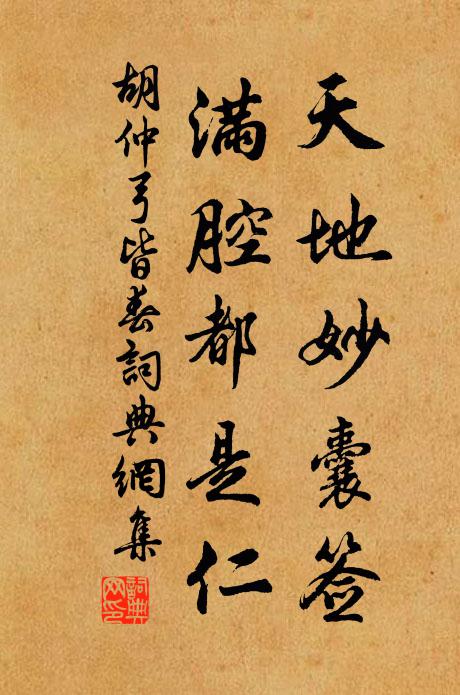 天地妙囊签
满腔都是仁
胡仲弓皆春詞典網集
詞典网印